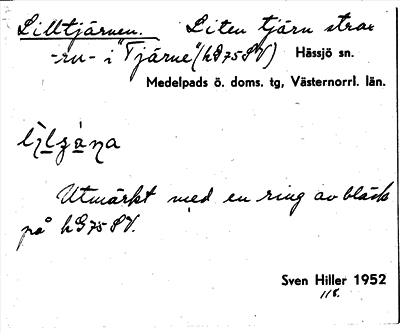 Lilltjärnen. Liten tjärn strax
-rn- i "Tjärne" (hG75SV) Hässjö sn.
Medelpads ö. doms. tg, Västernorrl. län.
Utmärkt med en ring av bläck
på hG75SV.
Sven Hiller 1952
118.